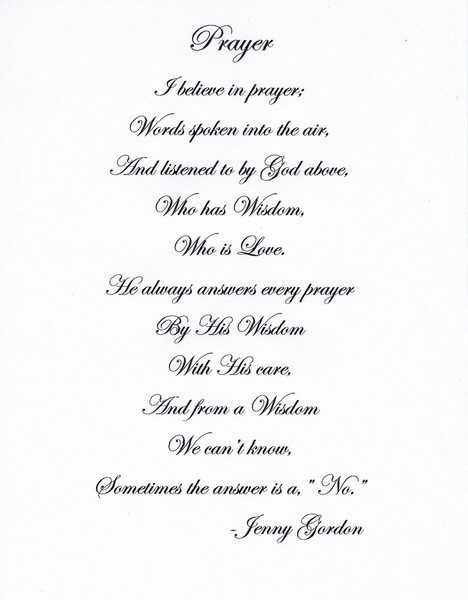 Prayer
I believe in prayer;
Words spoken into the air,
And listened to by God above,
Who has Wisdom,
Who is Love.
He always answers every prayer
By His Wisdom
With His care,
And from a Wisdom
We can't know,
Sometimes the answer is a, "No."
-Jenny Gordon